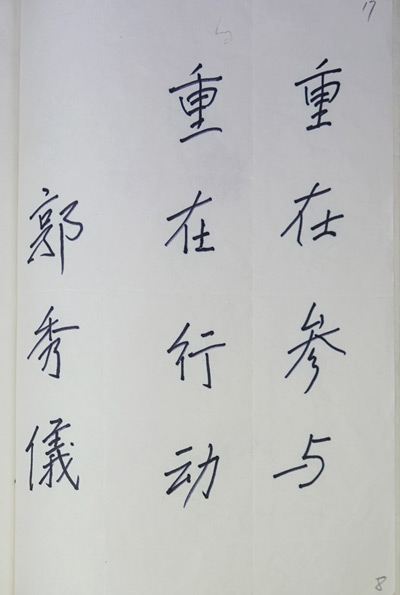 17
重在参与
重在行动
郭秀儀
8